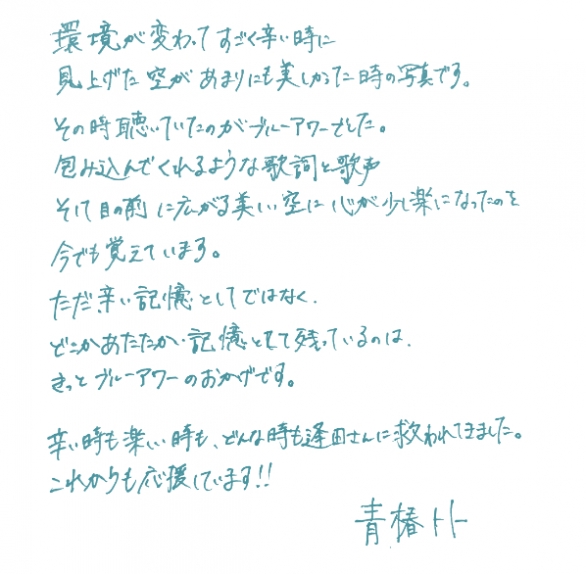 環境が変わってすごく辛い時に
見上げた空があまりにも美しかった時の写真です。
その時聴いていたのがブルーアワーでした。
包み込んでくれるような歌詞と歌声
そして目の前に広がる美しい空に心が少し楽になったのを
今でも覚えています。
ただ辛い記憶としてではなく、
どこかあたたかい記憶として残っているのは、
きっとブルーアワーのおかげです。
辛い時も楽しい時も、どんな時も逢田さんに救われてきました。
これからも応援しています!!
青椿トト